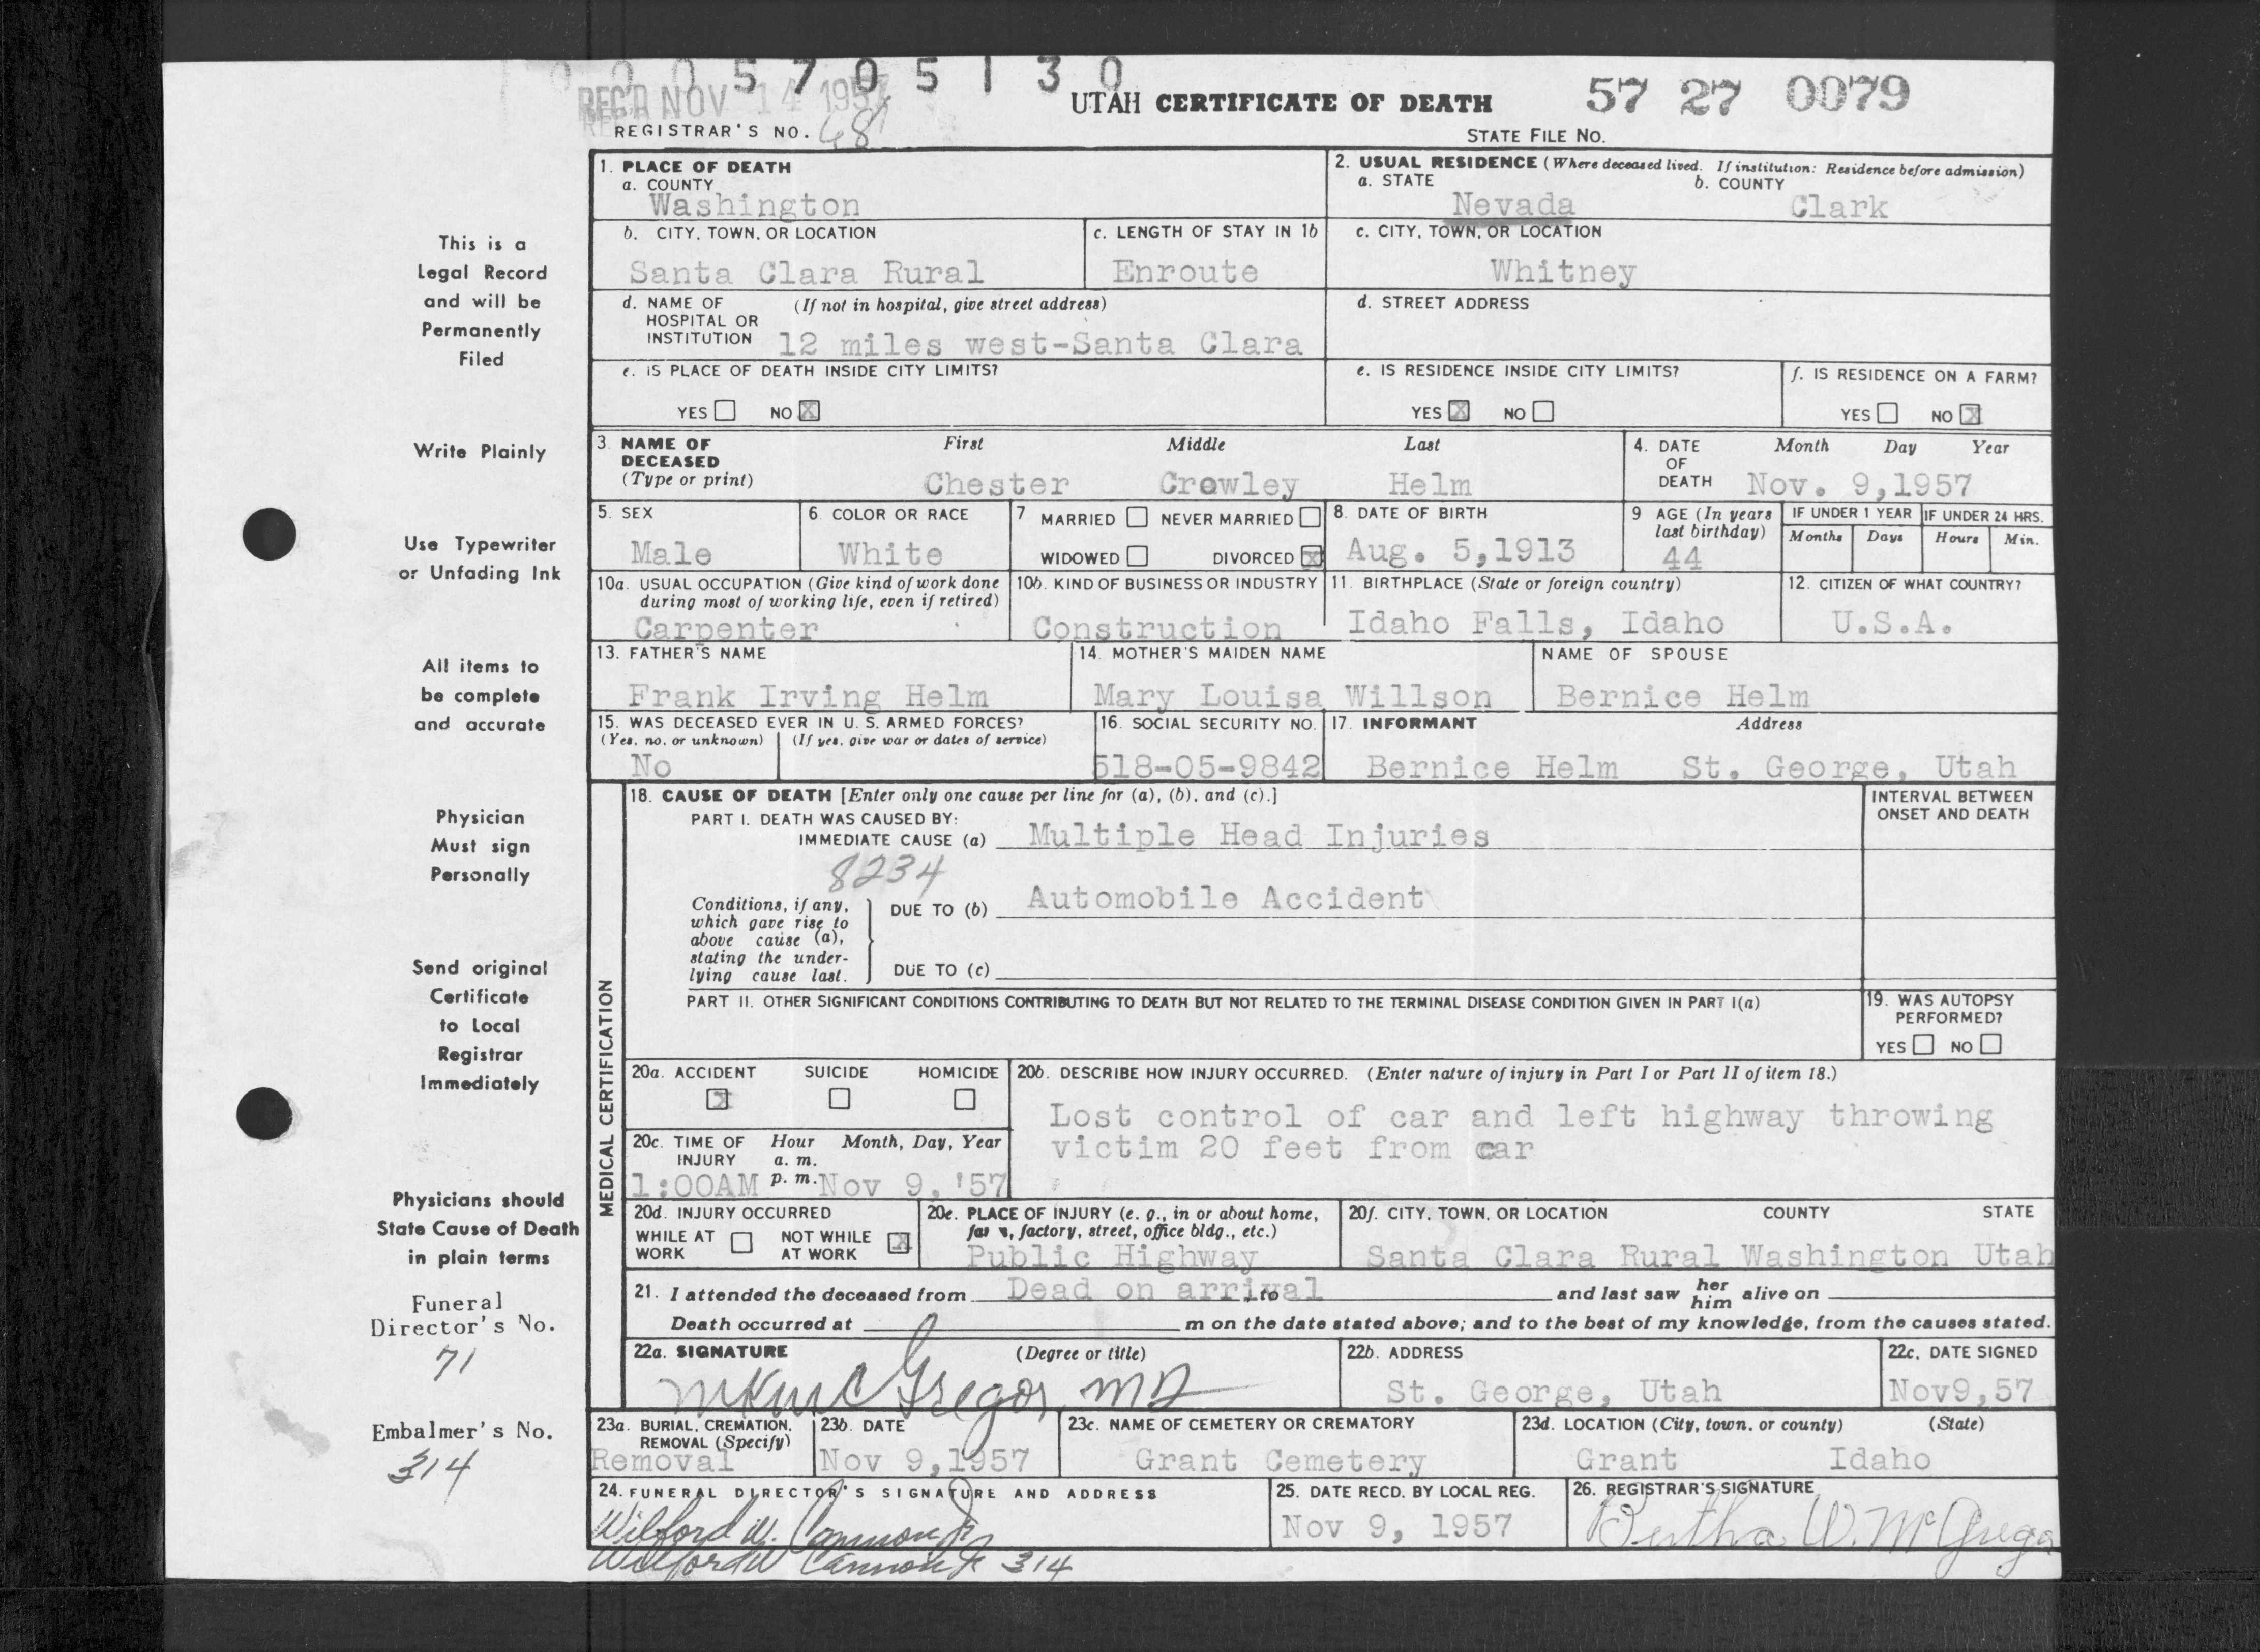 0 0 0 5 7 0 5 1 3 0
REC'D NOV 14 1957
UTAH CERTIFICATE OF DEATH
57 27 0079
REGISTRAR'S NO. 48
STATE FILE NO.
1. PLACE OF DEATH
a. COUNTY
Washington
2. USUAL RESIDENCE (Where deceased lived. If institution: Residence before admission)
a. STATE b. COUNTY
Nevada Clark
b. CITY, TOWN, OR LOCATION
Santa Clara Rural
c. LENGTH OF STAY IN 1b
Enroute
c. CITY, TOWN, OR LOCATION
Whitney
d. NAME OF (If not in hospital, give street address)
HOSPITAL OR
INSTITUTION 12 miles west-Santa Clara
d. STREET ADDRESS
e. IS PLACE OF DEATH INSIDE CITY LIMITS?
YES NO X
e. IS RESIDENCE INSIDE CITY LIMITS?
YES X NO
f. IS RESIDENCE ON A FARM?
YES NO X
3. NAME OF DECEASED (Type or print)
First Middle Last
Chester Crowley Helm
4. DATE OF DEATH
Month Day Year
Nov. 9,1957
5. SEX
Male
6. COLOR OR RACE
White
7 MARRIED NEVER MARRIED
WIDOWED DIVORCED X
8. DATE OF BIRTH
Aug. 5,1913
9 AGE (In years last birthday)
44
IF UNDER 1 YEAR IF UNDER 24 HRS.
Months Days Hours Min.
10a. USUAL OCCUPATION (Give kind of work done
during most of working life, even if retired)
Carpenter
10b. KIND OF BUSINESS OR INDUSTRY
Construction
11. BIRTHPLACE (State or foreign country)
Idaho Falls, Idaho
12. CITIZEN OF WHAT COUNTRY?
U.S.A.
13. FATHER'S NAME
Frank Irving Helm
14. MOTHER'S MAIDEN NAME
Mary Louisa Willson
NAME OF SPOUSE
Bernice Helm
15. WAS DECEASED EVER IN U. S. ARMED FORCES?
(Yes, no, or unknown) (If yes, give war or dates of service)
No
16. SOCIAL SECURITY NO.
518-05-9842
17. INFORMANT Address
Bernice Helm St. George, Utah
MEDICAL CERTIFICATION
18. CAUSE OF DEATH [Enter only one cause per line for (a), (b), and (c).]
INTERVAL BETWEEN
ONSET AND DEATH
PART I. DEATH WAS CAUSED BY:
IMMEDIATE CAUSE (a) Multiple Head Injuries
8234
Conditions, if any,
which gave rise to
above cause (a),
stating the under-
lying cause last.
DUE TO (b) Automobile Accident
DUE TO (c)
PART II. OTHER SIGNIFICANT CONDITIONS CONTRIBUTING TO DEATH BUT NOT RELATED TO THE TERMINAL DISEASE CONDITION GIVEN IN PART I(a)
19. WAS AUTOPSY
PERFORMED?
YES NO
20a. ACCIDENT SUICIDE HOMICIDE
X
20b. DESCRIBE HOW INJURY OCCURRED. (Enter nature of injury in Part I or Part II of item 18.)
Lost control of car and left highway throwing
victim 20 feet from car
20c. TIME OF INJURY Hour Month, Day, Year
a. m.
p. m.
1:00AM Nov 9, '57
20d. INJURY OCCURRED
WHILE AT WORK NOT WHILE AT WORK X
20e. PLACE OF INJURY (e. g., in or about home,
farm, factory, street, office bldg., etc.)
Public Highway
20f. CITY, TOWN, OR LOCATION COUNTY STATE
Santa Clara Rural Washington Utah
21. I attended the deceased from Dead on arrival, to and last saw her him alive on
Death occurred at m on the date stated above; and to the best of my knowledge, from the causes stated.
22a. SIGNATURE (Degree or title)
MKMcGregor MD
22b. ADDRESS
St. George, Utah
22c. DATE SIGNED
Nov9,57
23a. BURIAL, CREMATION,
REMOVAL (Specify)
Removal
23b. DATE
Nov 9,1957
23c. NAME OF CEMETERY OR CREMATORY
Grant Cemetery
23d. LOCATION (City, town, or county) (State)
Grant Idaho
24. FUNERAL DIRECTOR'S SIGNATURE AND ADDRESS
Wilford W. Cannon Jr
Wilford W Cannon Jr 314
25. DATE RECD. BY LOCAL REG.
Nov 9, 1957
26. REGISTRAR'S SIGNATURE
Bertha W. McGregor
This is a
Legal Record
and will be
Permanently
Filed
Write Plainly
Use Typewriter
or Unfading Ink
All items to
be complete
and accurate
Physician
Must sign
Personally
Send original
Certificate
to Local
Registrar
Immediately
Physicians should
State Cause of Death
in plain terms
Funeral
Director's No.
71
Embalmer's No.
314